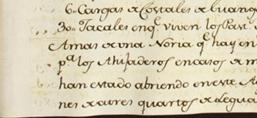 6„ Cargas de Costales de Guang
30„ Jacales enq.e viven los Past
Amas de una Noria q.e hay en
p.a los Ahijaderos en caso de m
han estado abriendo en este A
nes de a tres quartos de legua